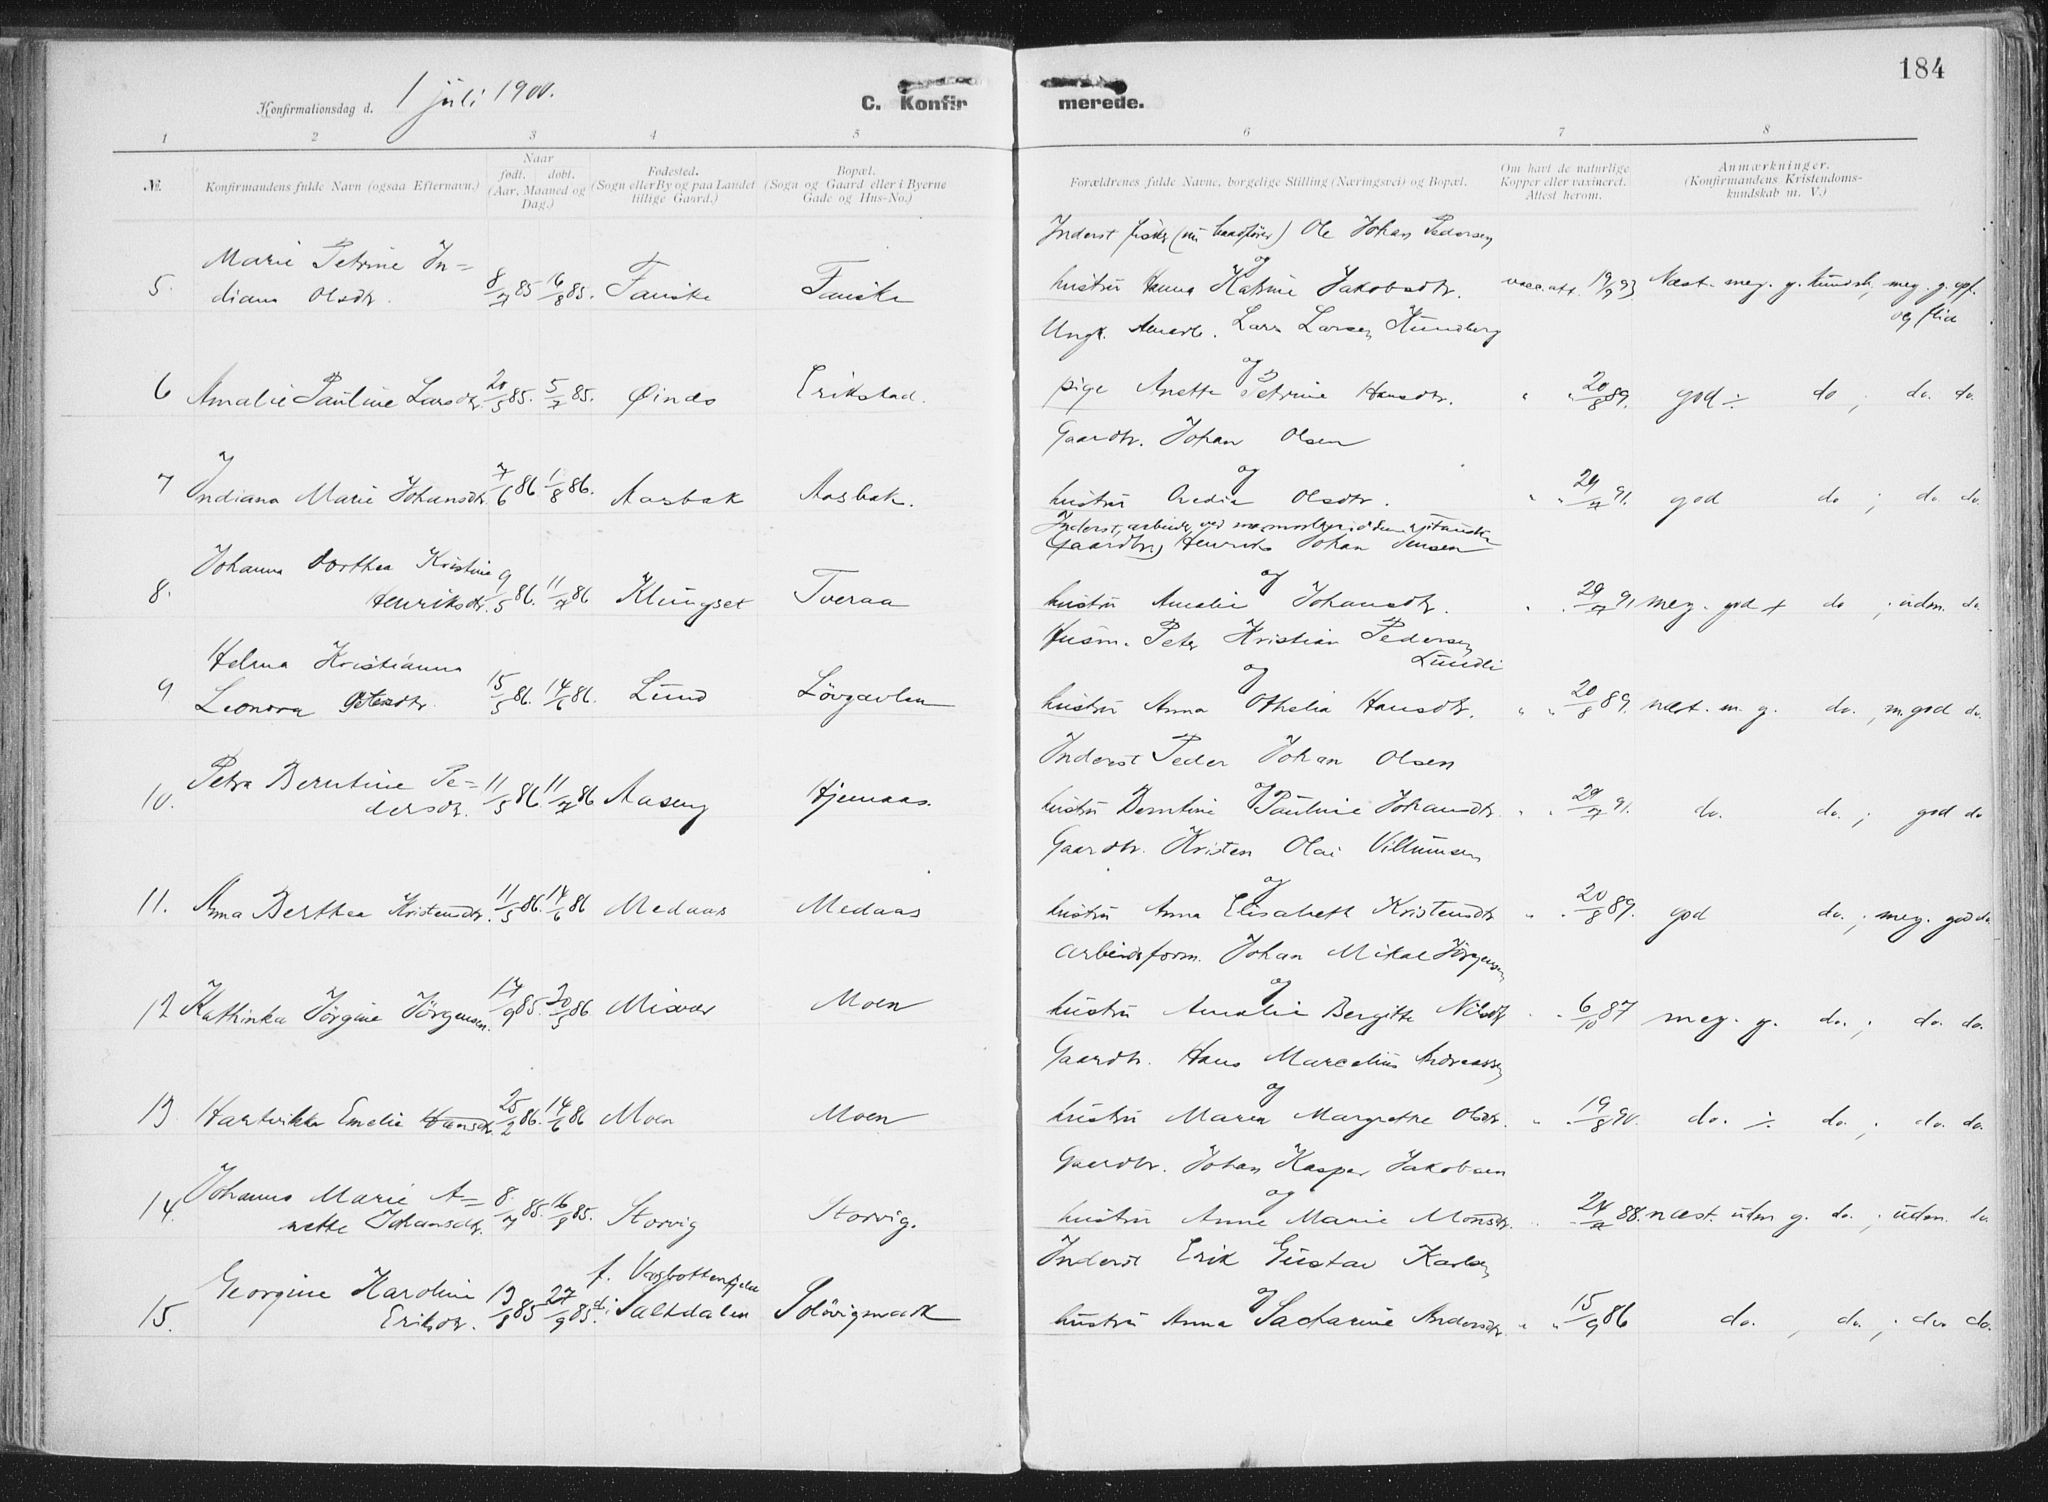 184
Konfirmationsdag d. 1 juli 1900.
C. Konfirmerede.
1 2 3 4 5 6 7 8
№.
Konfirmandens fulde Navn (ogsaa Efternavn.)
Naar
født. døbt.
(Aar, Maaned og Dag.)
Fødested.
(Sogn eller By og paa Landet
tillige Gaard.)
Bopæl.
(Sogn og Gaard eller i Byerne
Gade og Hus-No.)
Forældrenes fulde Navne, borgelige Stilling (Næringsvei) og Bopæl.
Om havt de naturlige
Kopper eller vaxineret.
Attest herom.
Anmærkninger.
(Konfirmandens Kristendoms-
kundskab m. V.)
Inderst fisker Ole Johan Pedersen
Marie Petrine In=
og
5. diana Olsdtr. 8/7 85 16/8 85. Fauske Fauske hustru Hanna Katrine Jakobsdtr. vacc. att. 19/9 93 Næst. meg. g. kundsk., meg. g. opf.
og flid
Ungk. Lars Larsen
og
6 Amalie Pauline Larsdtr. 20/5 85. 5/7 85. Øines Erikstad. pige Anette Petrine Hansdtr. " " 20/8 89. god ÷ do ; do. do.
Gaardbr. Johan Olsen
og
7 Indiana Marie Johansdtr. 7/6 86 1/8 86. Aasbak Aasbak. hustru Olsdtr. " " 29/7 91. god do ; do do.
Inderst, arbeider ved
(Gaardbr.) Henrik Johan Jensen
Johanna Dorthea Kristine
og
8. Henriksdtr. 9/5 86. 11/7 86 Klungset Tveraa hustru Amalie Johansdtr. " 29/7 91 meg. god + do ; udm. do.
Husm. Peter Kristian Pedersen
Lundli
Helma Kristianna
og
9 Leonora Petersdtr. 15/5 86. 14/6 86. Lund Lövgavlen hustru Anna Othelia Hansdtr. " " 20/8 89. næst. m. g. do. , m. god do.
Inderst Peder Johan Olsen
Petra Berntine Pe=
og
10. dersdtr. 11/5 86. 11/7 86 Aaseng Hjemaas. hustru Berntine Pauline Johansdtr. " " 29/7 91. do. do. ; god do
Gaardbr. Kristen Olai Villumsen
og
11. Anna Berthea Kristensdtr. 11/5 86. 14/6 86 Medaas Medaas hustru Anna Elisabeth Kristensdtr " " 20/8 89. god do. ; meg. god do
Arbeidsform. Johan Mikal Jörgensen
og
12 Kathinka Jörgine Jörgensen. 17/9 85. 20/5 86 Misvær Moen hustru Amalie Bergitte Nilsdtr " " 6/10 87 meg. g. do. ; do. do.
Gaardbr. Hans Marcelius Andreassen
og
13 Hartvikka Emelie Hansdtr. 25/2 86. 14/6 86 Moen Moen hustru Maren Margrethe Olsdtr. " " 19/8 90. do. ÷ do. ; do. do.
Gaardbr. Johan Kaspar Jakobsen
Johanna Marie A=
og
14. nette Johansdtr. 8/7 85. 16/8 85. Storvig Storvig. hustru Anne Marie Monsdtr. næst. udm g. do. ; udm. do
Inderst Erik Gustav Karlsen
Georgine Karoline f. i
og
15. Eriksdtr. 13/8 85 27/9 85. Saltdalen Solövigmark hustru Anna Sacharine Andersdtr " " 15/9 86 do. , do. ; do do.